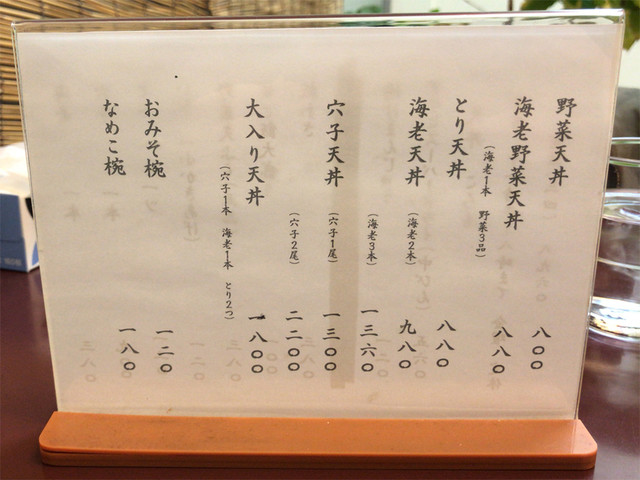 野菜天丼 八〇〇
海老野菜天丼 八八〇
（海老1本 野菜3品）
とり天丼 八八〇
海老天丼 （海老2本） 九八〇
（海老3本） 一三六〇
穴子天丼 （穴子1尾） 一三〇〇
（穴子2尾） 二二〇〇
大入り天丼 一八〇〇
（穴子1本 海老1本 とり2つ）
おみそ椀 一二〇
なめこ椀 一八〇